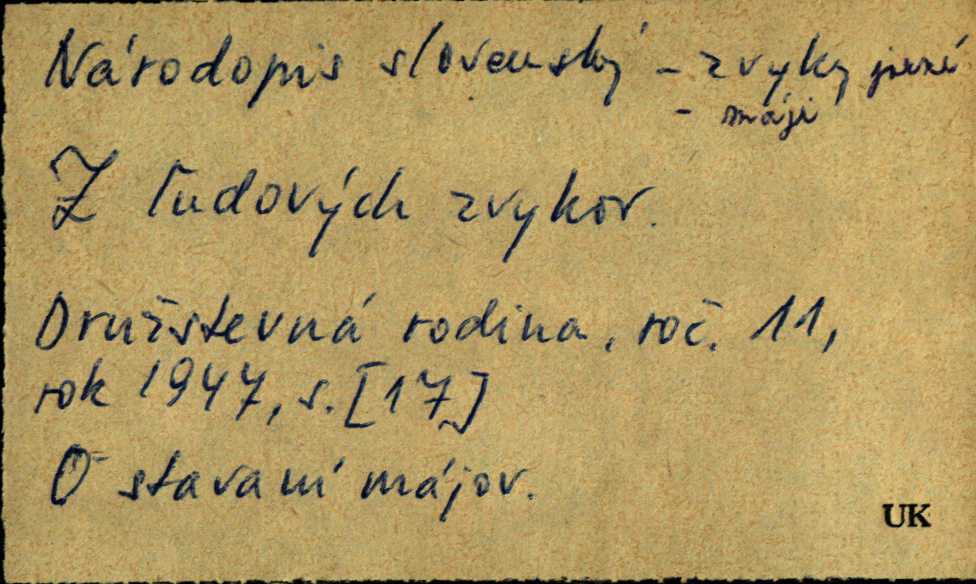 Národopis slovenský - zvyky jarné
- máji
Z ľudových zvykov.
Družstevná rodina, roč. 11,
rok 1947, s. [17]
O stavaní májov.
UK